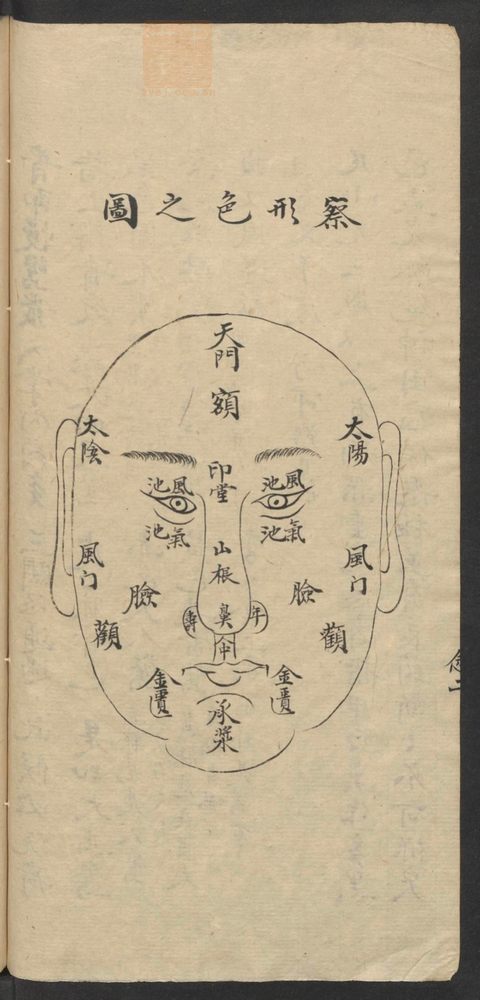 察形色之圖
天門
額
太陽
太陰
印堂
風池
風池
氣池
氣池
山根
風门
風门
臉
臉
年
鼻
壽
中
顴
顴
金匱
金匱
承漿